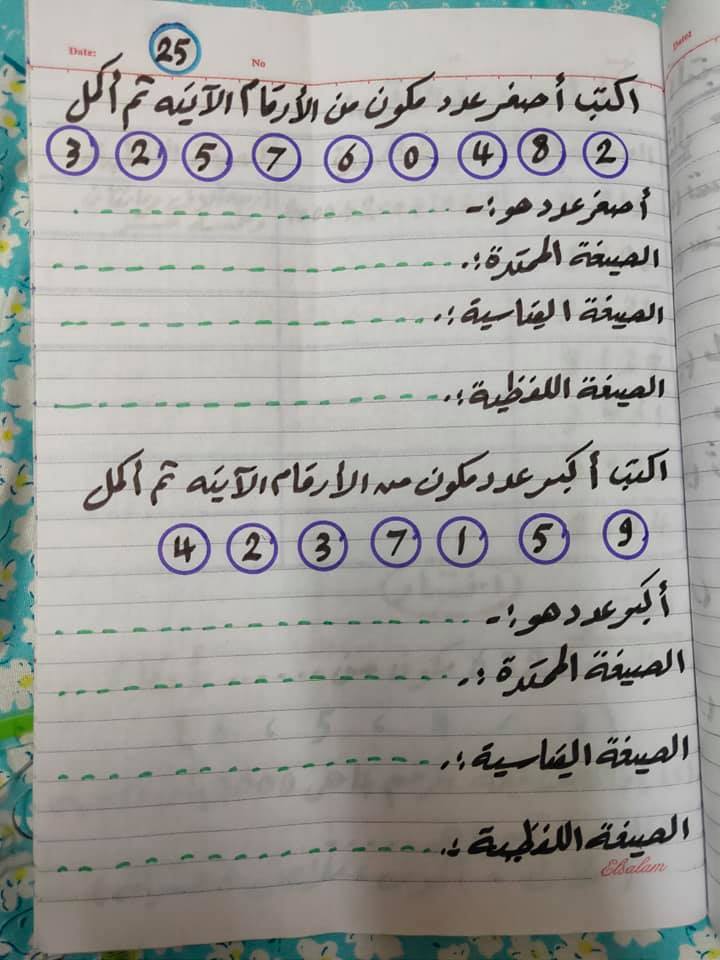 Date:
25
No
اكتب أصغر عدد مكون من الأرقام الآتيه ثم أكمل
2 8 4 0 6 7 5 2 3
أصغر عدد هو:-
الصيغة الممتدة:.
الصيغة القياسية:.
الصيغة اللفظية:.
اكتب أكبر عدد مكون من الأرقام الآتيه ثم أكمل
9 5 1 7 3 2 4
أكبر عدد هو:-
الصيغة الممتدة:.
الصيغة القياسية:.
الصيغة اللفظية:.
Elsalam
Date: